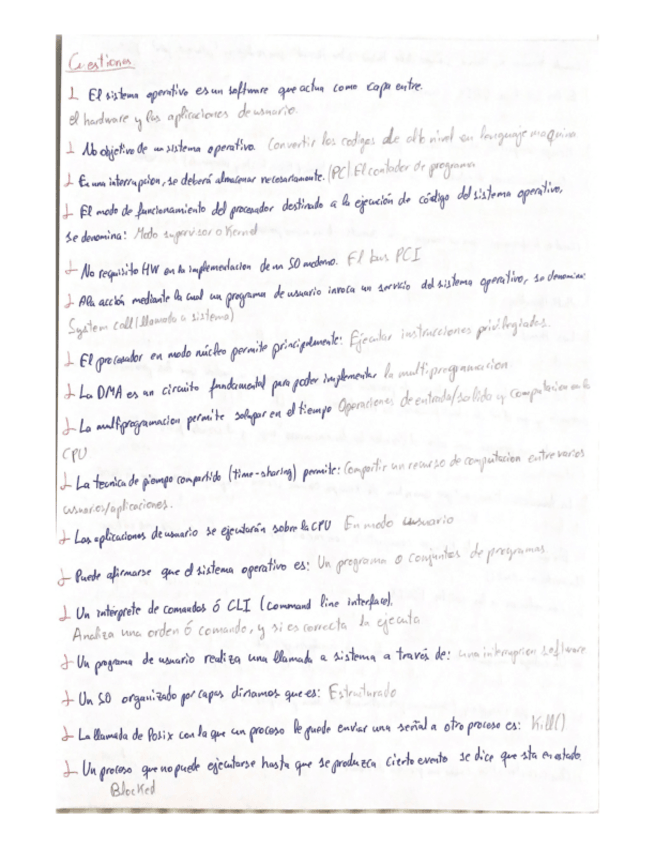 Cuestiones
1 El sistema operativo es un software que actua como capa entre.
el hardware y las aplicaciones de usuario.
1 No objetivo de un sistema operativo. Convertir los codigos de alto nivel en lenguaje maquina
1 En una interrupcion, se deberá almacenar necesariamente. (PC) El contador de programa
1 El modo de funcionamiento del procesador destinado a la ejecución de código del sistema operativo,
se denomina: Modo supervisor o Kernel
1 No requisito HW en la implementacion de un SO moderno. El bus PCI
1 A la acción mediante la cual un programa de usuario invoca un servicio del sistema operativo, se denomina:
System call (llamada a sistema)
1 El procesador en modo núcleo permite principalmente: Ejecutar instrucciones privilegiadas.
1 La DMA es un circuito fundamental para poder implementar la multiprogramacion.
1 La multiprogramacion permite solapar en el tiempo Operaciones de entrada/salida y computacion en la
CPU
1 La tecnica de tiempo compartido (time-sharing) permite: Compartir un recurso de computacion entre varios
usuarios/aplicaciones.
1 Las aplicaciones de usuario se ejecutarán sobre la CPU En modo usuario
1 Puede afirmarse que el sistema operativo es: Un programa o conjuntos de programas
1 Un intérprete de comandos ó CLI (Command line interface).
Analiza una orden ó comando, y si es correcta la ejecuta
1 Un programa de usuario realiza una llamada a sistema a través de: una interrupcion software
1 Un SO organizado por capas diriamos que es: Estructurado
1 La llamada de Posix con la que un proceso le puede enviar una señal a otro proceso es: Kill()
1 Un proceso que no puede ejecutarse hasta que se produzca cierto evento se dice que sta en estado.
Blocked